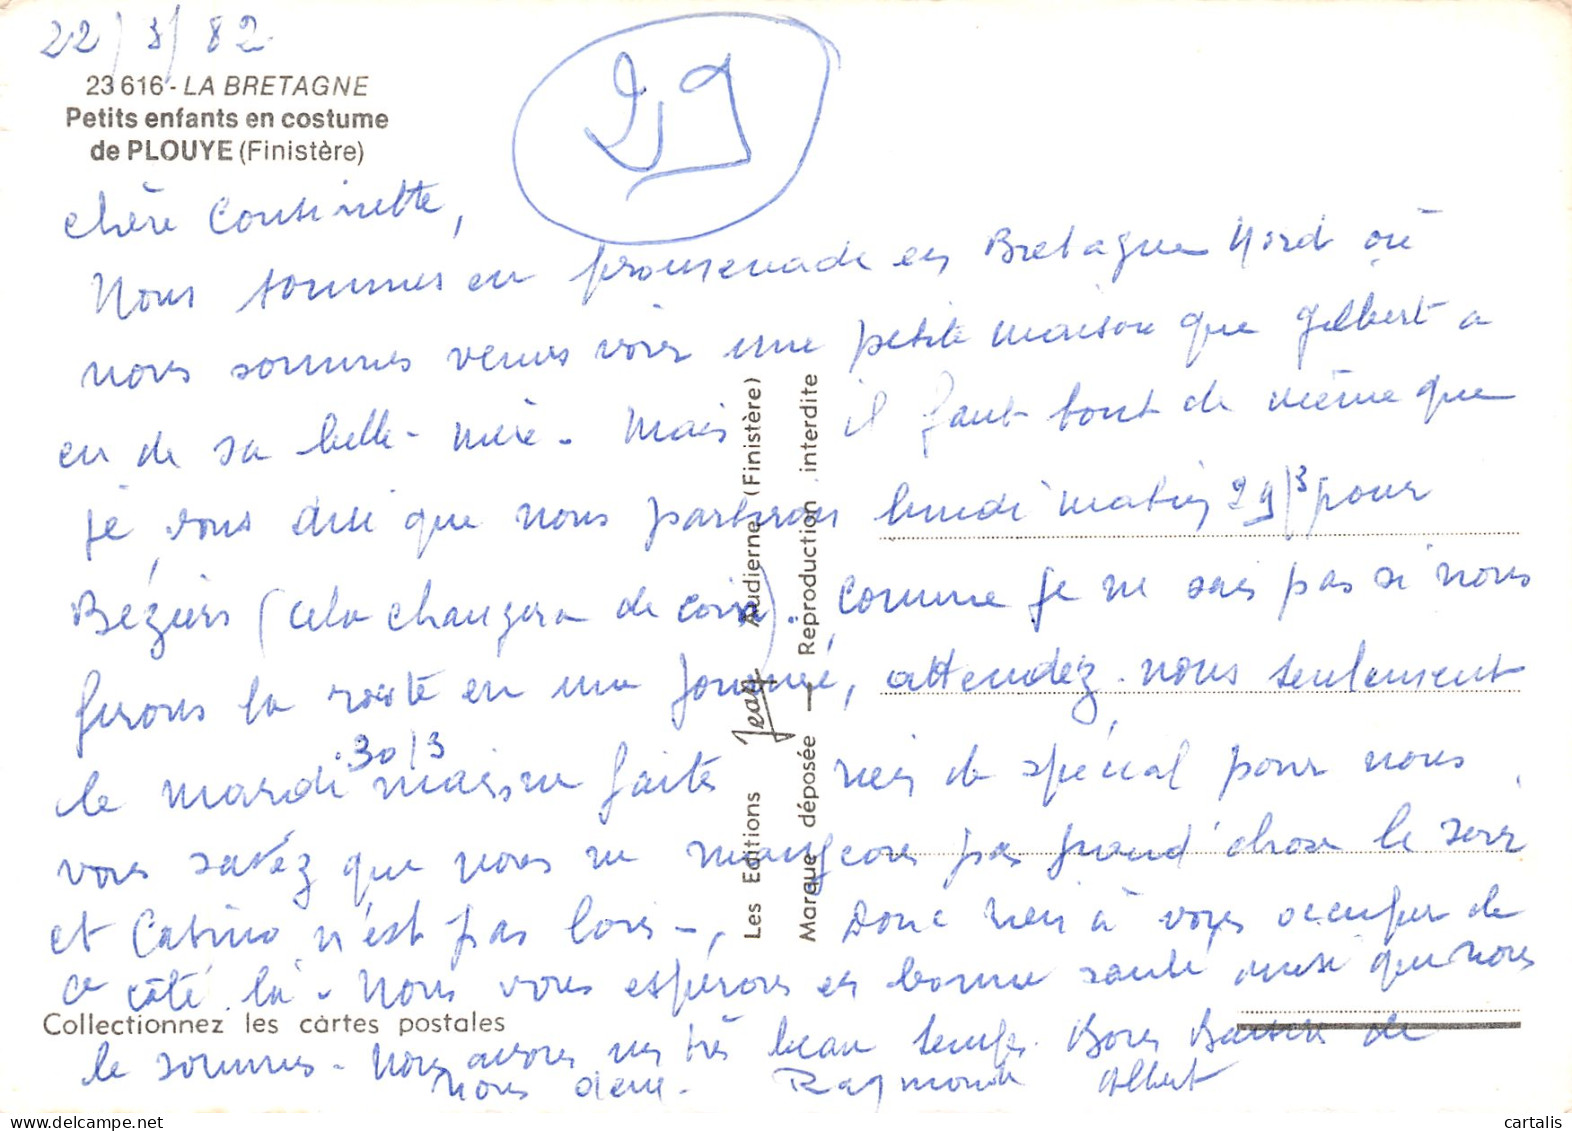 22/3/82
29
23 616 - LA BRETAGNE
Petits enfants en costume
de PLOUYE (Finistère)
chère Cousinette,
Nous sommes en promenade en Bretagne Nord où
nous sommes venus voir une petite maison que Gilbert a
eu de sa belle-mère. Mais il faut tout de même que
je vous dise que nous partirons lundi matin 29/3 pour
Béziers (cela changera de coin). Comme je ne sais pas si nous
ferons la route en une journée, attendez-nous seulement
le mardi 30/3 mais ne faites rien de spécial pour nous
vous savez que nous ne mangeons pas grand'chose le soir
et Casino n'est pas loin -, Donc rien à vous occuper de
ce côté là. Nous vous espérons en bonne santé ainsi que nous
le sommes. Nous avons un très beau temps. Bons Baisers de
nous deux. Raymonde Albert
Les Editions Jean Audierne (Finistère)
Marque déposée — Reproduction interdite
Collectionnez les cartes postales
cartalis
www.delcampe.net